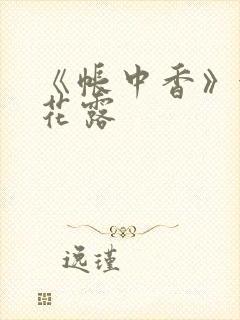 《帐中香》
花露
逸瑾